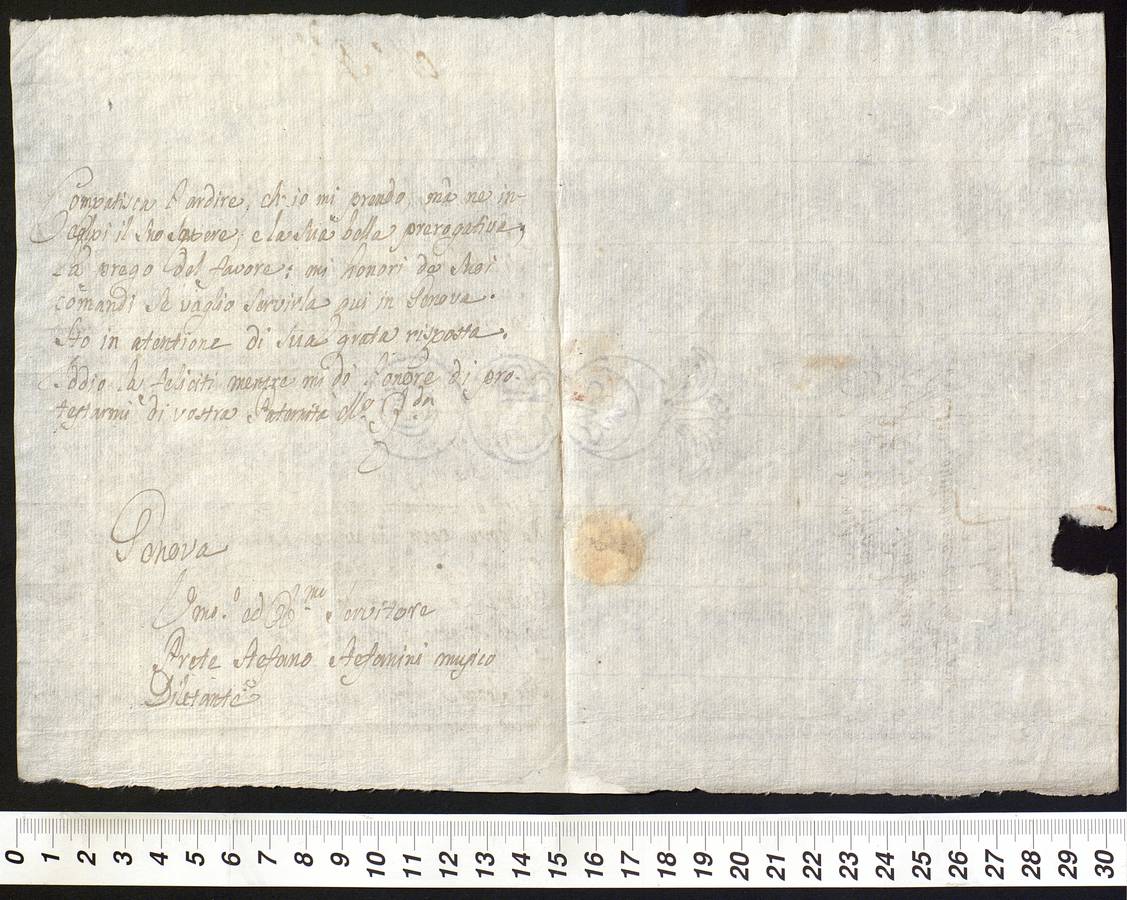 Compatisca l'ardire, ch'io mi prendo, mà ne in-
colpi il suo sapere, e la sua bella prerogativa,
La prego del favore: mi honori de suoi
comandi se vaglio servirla qui in Genova.
Sto in atentione di sua grata risposta.
Iddio la feliciti mentre mi dò l'onore di pro-
testarmi di vostra Paternità M.º R.da
Genova
Umo.º ed Obb.mo Servitore
Prete Stefano Stefanini musico
Diletante
0 1 2 3 4 5 6 7 8 9 10 11 12 13 14 15 16 17 18 19 20 21 22 23 24 25 26 27 28 29 30